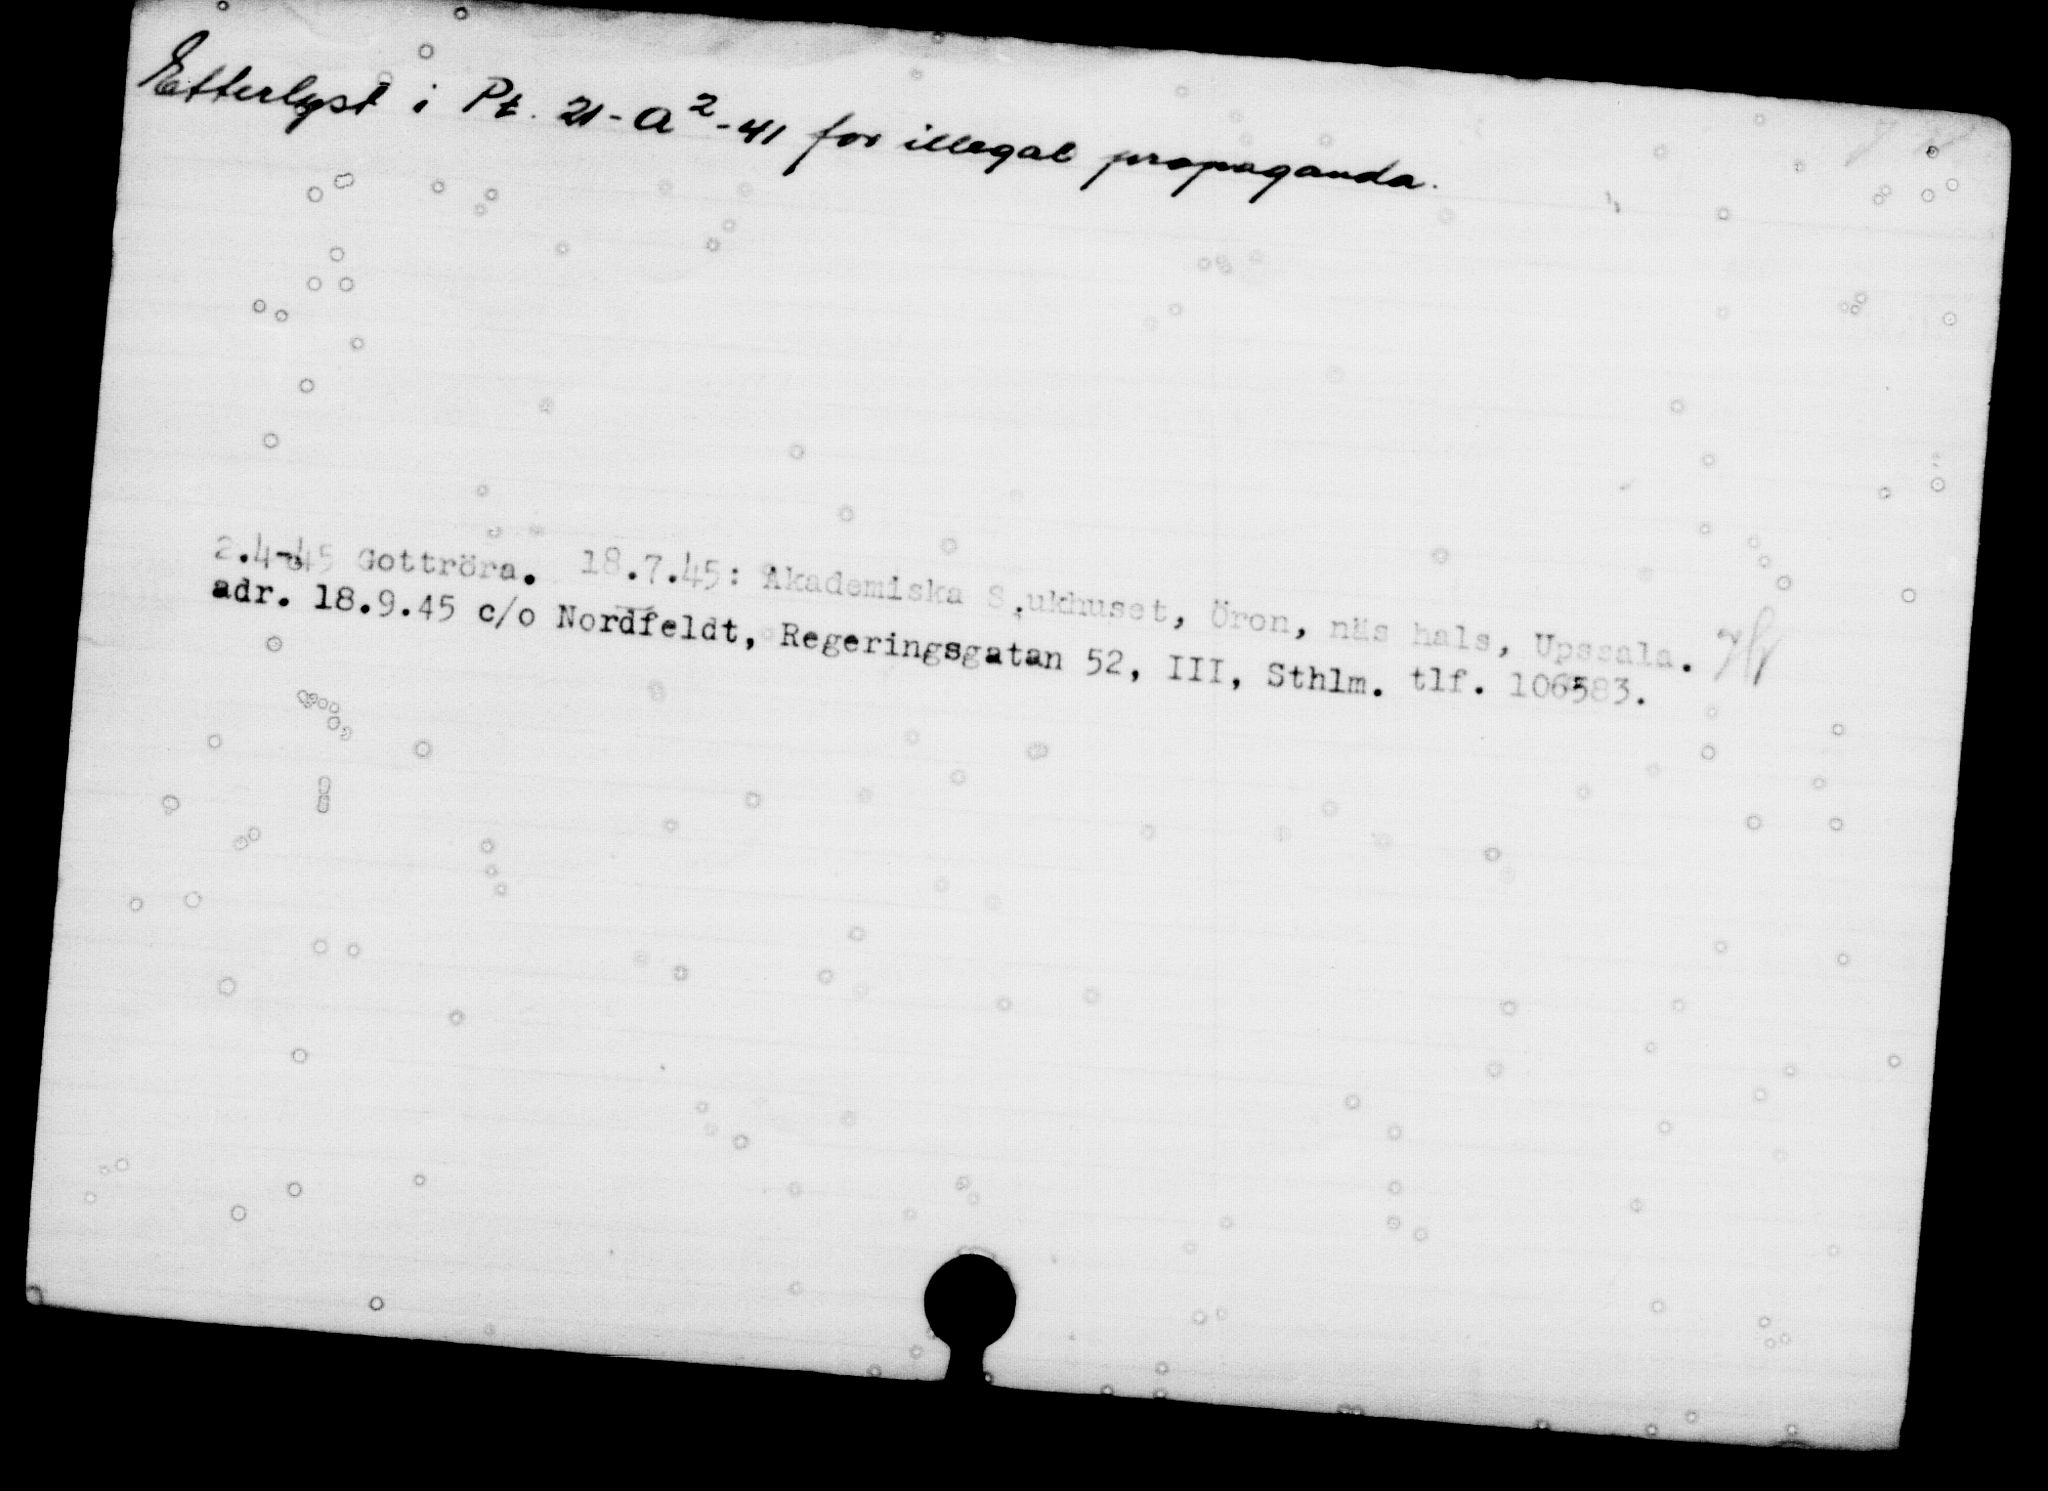 Etterlyst i Pt. 21-a²-41 for illegal propaganda.
2.4-45 Gottröra. 18.7.45: Akademiska Sjukhuset, Öron, näs hals, Uppsala.
adr. 18.9.45 c/o Nordfeldt, Regeringsgatan 52, III, Sthlm. tlf. 106583.